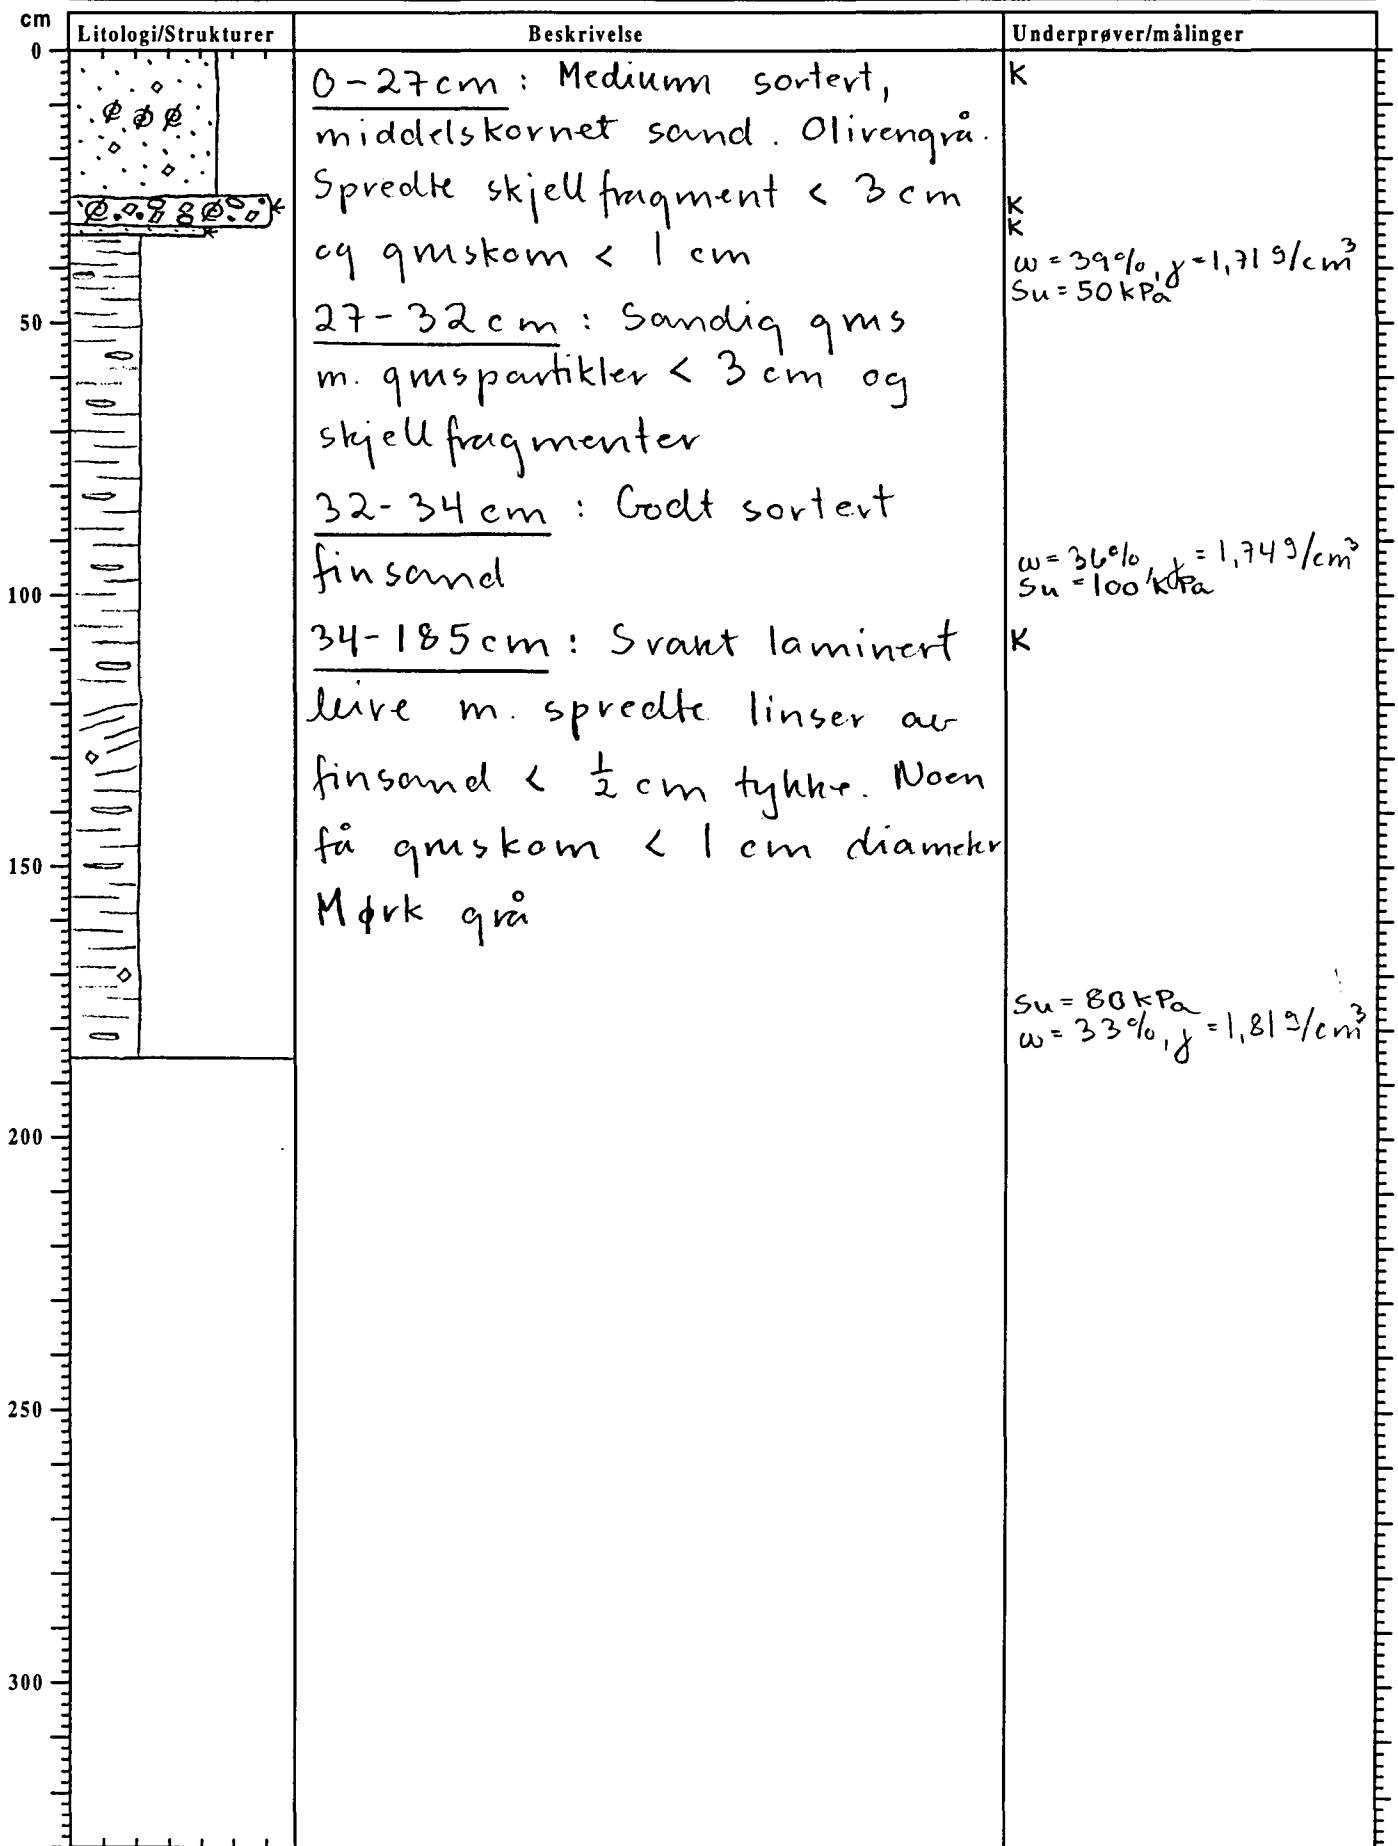 cm
Litologi/Strukturer
Beskrivelse
Underprøver/målinger
0
50
100
150
200
250
300
0-27cm : Medium sortert,
middelskornet sand. Olivengrå.
Spredte skjellfragment < 3 cm
og gruskorn < 1 cm
27-32cm : Sandig grus
m. gruspartikler < 3 cm og
skjellfragmenter
32-34 cm : Godt sortert
finsand
34-185cm : Svakt laminert
leire m. spredte linser av
finsand < ½ cm tykke. Noen
få gruskorn < 1 cm diameter
Mørk grå
K
K
K
ω = 39%, γ = 1,71 g/cm³
Su = 50 kPa
ω = 36%, γ = 1,74 g/cm³
Su = 100 kPa
K
Su = 80 kPa
ω = 33%, γ = 1,81 g/cm³